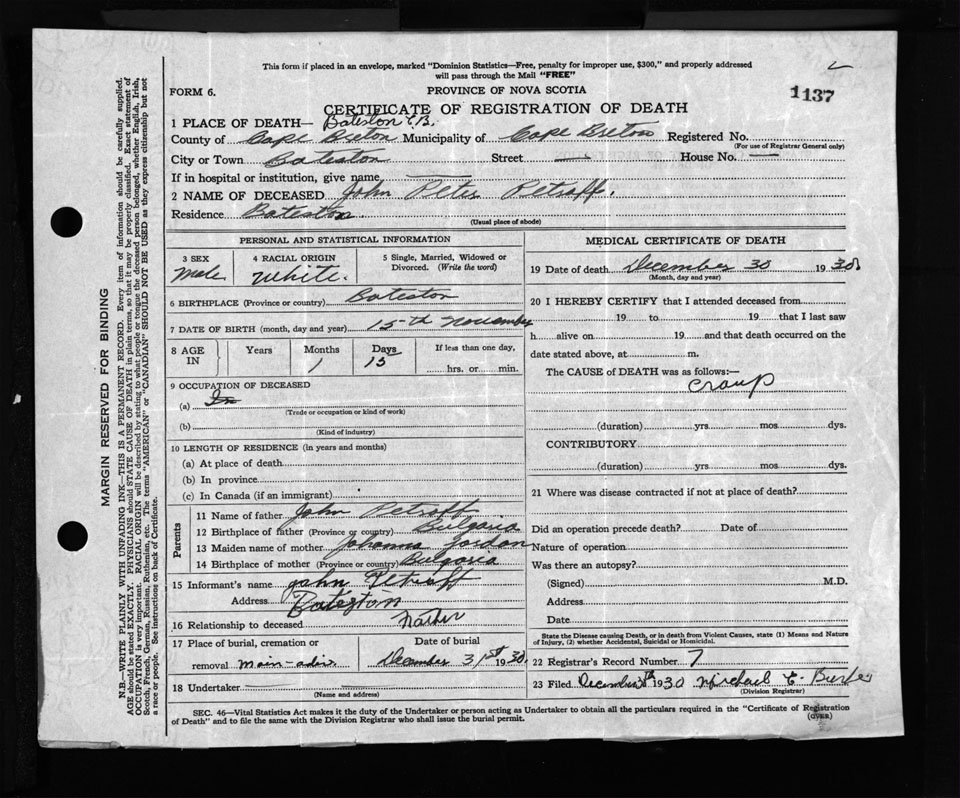 This form if placed in an envelope, marked "Dominion Statistics—Free, penalty for improper use, $300," and properly addressed
will pass through the Mail "FREE"
FORM 6.
PROVINCE OF NOVA SCOTIA
1137
CERTIFICATE OF REGISTRATION OF DEATH
1 PLACE OF DEATH— Bateston C.B.
County of Cape Breton Municipality of Cape Breton Registered No.
(For use of Registrar General only)
City or Town Bateston Street — House No. —
If in hospital or institution, give name —
2 NAME OF DECEASED John Peter Petroff.
Residence Bateston.
(Usual place of abode)
PERSONAL AND STATISTICAL INFORMATION
3 SEX Male
4 RACIAL ORIGIN White.
5 Single, Married, Widowed or Divorced. (Write the word)
6 BIRTHPLACE (Province or country) Bateston
7 DATE OF BIRTH (month, day and year) 15th November
8 AGE IN Years Months 1 Days 15 If less than one day, hrs. or min.
9 OCCUPATION OF DECEASED
(a)
(Trade or occupation or kind of work)
(b)
(Kind of industry)
10 LENGTH OF RESIDENCE (in years and months)
(a) At place of death
(b) In province
(c) In Canada (if an immigrant)
Parents
11 Name of father John Petroff
12 Birthplace of father (Province or country) Bulgaria
13 Maiden name of mother Johanna Jordon
14 Birthplace of mother (Province or country) Bulgaria
15 Informant's name John Petroff
Address Bateston
16 Relationship to deceased Father
17 Place of burial, cremation or removal Main-adieu
Date of burial December 31st 1930.
18 Undertaker —
(Name and address)
MEDICAL CERTIFICATE OF DEATH
19 Date of death December 30 1930
(Month, day and year)
20 I HEREBY CERTIFY that I attended deceased from
19 to 19 that I last saw
h alive on 19 and that death occurred on
date stated above, at m.
The CAUSE of DEATH was as follows:—
croup
(duration) yrs. mos. dys.
CONTRIBUTORY
(duration) yrs. mos. dys.
21 Where was disease contracted if not at place of death?
Did an operation precede death? Date of
Nature of operation
Was there an autopsy?
(Signed) M.D.
Address
Date
State the Disease causing Death, or in death from Violent Causes, state (1) Means and Nature
of Injury, (2) whether Accidental, Suicidal or Homicidal.
22 Registrar's Record Number 7
23 Filed December 1930 Michael C. Burke
(Division Registrar)
SEC. 46—Vital Statistics Act makes it the duty of the Undertaker or person acting as Undertaker to obtain all the particulars required in the "Certificate of Registration
of Death" and to file the same with the Division Registrar who shall issue the burial permit.
(OVER)
MARGIN RESERVED FOR BINDING
N.B.—WRITE PLAINLY WITH UNFADING INK—THIS IS A PERMANENT RECORD. Every item of information should be carefully supplied.
AGE should be stated EXACTLY. PHYSICIANS should STATE CAUSE OF DEATH in plain terms, so that it may be properly classified. Exact statement of
OCCUPATION is very important. RACIAL ORIGIN will be described by stating to what people or tongue the deceased person belonged, whether English, Irish,
Scotch, French, German, Russian, Ruthenian, etc. The terms "AMERICAN" or "CANADIAN" SHOULD NOT BE USED as they express citizenship but not
a race or people. See instructions on back of Certificate.